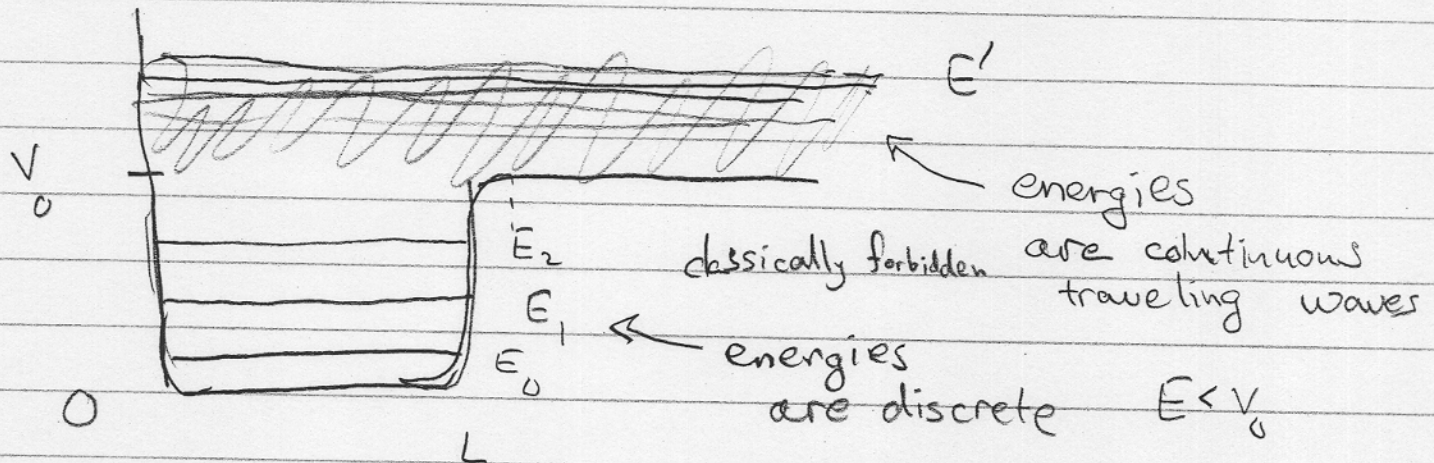 E'
V₀
energies
are continuous
traveling waves
E₂
classically forbidden
E₁
E₀
energies
are discrete
E < V₀
O
L